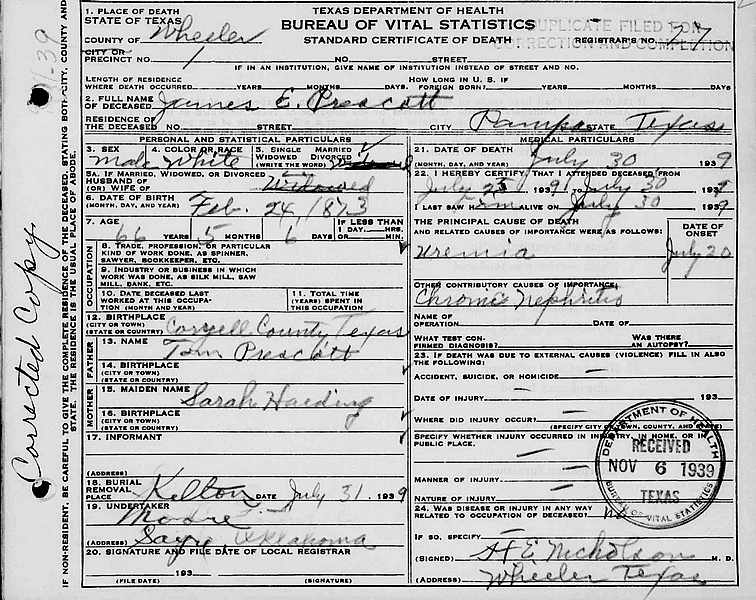 1. PLACE OF DEATH
STATE OF TEXAS
COUNTY OF Wheeler
CITY OR
PRECINCT NO. 1 NO. STREET
TEXAS DEPARTMENT OF HEALTH
BUREAU OF VITAL STATISTICS
STANDARD CERTIFICATE OF DEATH
DUPLICATE FILED FOR
CORRECTION AND COMPLETION
REGISTRAR'S NO. 27
IF IN AN INSTITUTION, GIVE NAME OF INSTITUTION INSTEAD OF STREET AND NO.
LENGTH OF RESIDENCE
WHERE DEATH OCCURRED YEARS MONTHS DAYS
HOW LONG IN U. S. IF
FOREIGN BORN? YEARS MONTHS DAYS
2. FULL NAME
OF DECEASED James E. Prescott
RESIDENCE OF
THE DECEASED NO. STREET CITY Pampa STATE Texas
PERSONAL AND STATISTICAL PARTICULARS
3. SEX Male
4. COLOR OR RACE White
5. SINGLE MARRIED
WIDOWED DIVORCED
(WRITE THE WORD)
5A. IF MARRIED, WIDOWED, OR DIVORCED
HUSBAND OF
(OR) WIFE OF Widowed
6. DATE OF BIRTH
(MONTH, DAY, AND YEAR) Feb. 24, 1873
7. AGE
66 YEARS 5 MONTHS 6 DAYS
IF LESS THAN
1 DAY HRS.
OR MIN.
OCCUPATION
8. TRADE, PROFESSION, OR PARTICULAR
KIND OF WORK DONE, AS SPINNER,
SAWYER, BOOKKEEPER, ETC.
9. INDUSTRY OR BUSINESS IN WHICH
WORK WAS DONE, AS SILK MILL, SAW
MILL, BANK, ETC.
10. DATE DECEASED LAST
WORKED AT THIS OCCUPA-
TION (MONTH AND YEAR)
11. TOTAL TIME
(YEARS) SPENT IN
THIS OCCUPATION
12. BIRTHPLACE
(CITY OR TOWN)
(STATE OR COUNTRY) Coryell County Texas
FATHER
13. NAME Tom Prescott
14. BIRTHPLACE
(CITY OR TOWN)
(STATE OR COUNTRY)
MOTHER
15. MAIDEN NAME Sarah Harding
16. BIRTHPLACE
(CITY OR TOWN)
(STATE OR COUNTRY)
17. INFORMANT
(ADDRESS)
18. BURIAL
REMOVAL
PLACE Kelton DATE July 31, 1939
19. UNDERTAKER
Moore
(ADDRESS) Sayre Oklahoma
20. SIGNATURE AND FILE DATE OF LOCAL REGISTRAR
193
(FILE DATE) (SIGNATURE)
MEDICAL PARTICULARS
21. DATE OF DEATH
(MONTH, DAY, AND YEAR) July 30 1939
22. I HEREBY CERTIFY, THAT I ATTENDED DECEASED FROM
July 25 1939 TO July 30 1939
I LAST SAW him ALIVE ON July 30 1939
THE PRINCIPAL CAUSE OF DEATH
AND RELATED CAUSES OF IMPORTANCE WERE AS FOLLOWS:
Uremia
DATE OF
ONSET
July 20
OTHER CONTRIBUTORY CAUSES OF IMPORTANCE:
Chronic Nephritis
NAME OF
OPERATION DATE OF
WHAT TEST CON-
FIRMED DIAGNOSIS?
WAS THERE
AN AUTOPSY?
23. IF DEATH WAS DUE TO EXTERNAL CAUSES (VIOLENCE) FILL IN ALSO
THE FOLLOWING:
ACCIDENT, SUICIDE, OR HOMICIDE
DATE OF INJURY 193
WHERE DID INJURY OCCUR?
(SPECIFY CITY OR TOWN, COUNTY, AND STATE)
SPECIFY WHETHER INJURY OCCURRED IN INDUSTRY, IN HOME, OR IN
PUBLIC PLACE.
MANNER OF INJURY
NATURE OF INJURY
24. WAS DISEASE OR INJURY IN ANY WAY
RELATED TO OCCUPATION OF DECEASED? No
IF SO, SPECIFY
(SIGNED) H E Nicholson M. D.
(ADDRESS) Wheeler Texas
DEPARTMENT OF HEALTH
RECEIVED
NOV 6 1939
TEXAS
BUREAU OF VITAL STATISTICS
Corrected Copy
IF NON-RESIDENT, BE CAREFUL TO GIVE THE COMPLETE RESIDENCE OF THE DECEASED, STATING BOTH CITY, COUNTY AND
STATE. THE RESIDENCE IS THE USUAL PLACE OF ABODE.